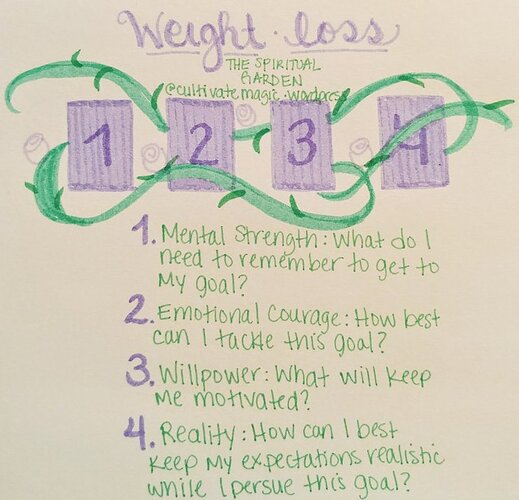 Weight loss
THE SPIRITUAL
GARDEN
@cultivatemagic.wordpress
1 2 3 4
1. Mental Strength: What do I
need to remember to get to
My goal?
2. Emotional Courage: How best
can I tackle this goal?
3. Willpower: What will keep
Me motivated?
4. Reality: How can I best
keep My expectations realistic
while I persue this goal?